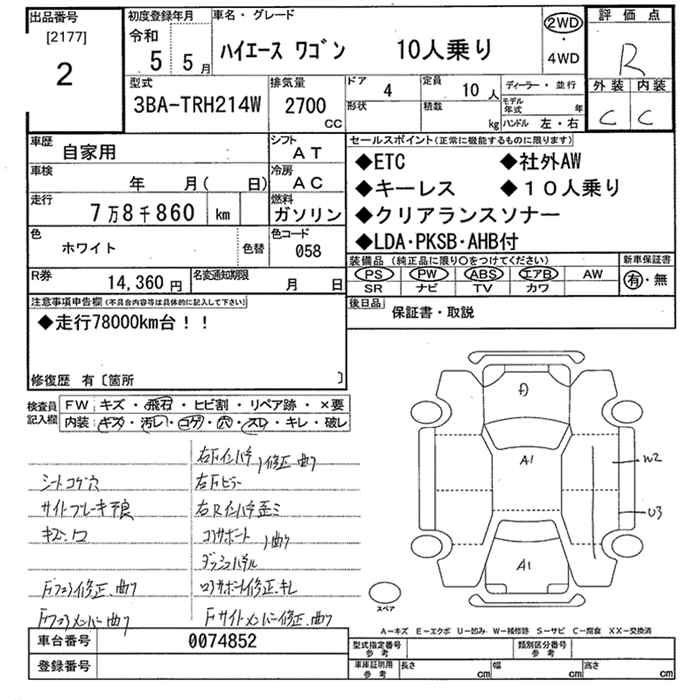 出品番号
[2177]
2
初度登録年月
令和
5 5月
車名・グレード
ハイエース ワゴン 10人乗り
2WD
・
4WD
評価点
R
外装 内装
C C
型式
3BA-TRH214W
排気量
2700
CC
ドア 4
形状
定員 10人
積数 kg
ディーラー・並行
モデル年式 年
ハンドル 左・右
車歴
自家用
シフト
AT
車検
年 月( 日)
冷房
AC
走行
7万8千860 km
燃料
ガソリン
色
ホワイト
色替
色コード
058
R券
14,360円
名変通知期限
月 日
セールスポイント(正常に機能するものに限ります)
◆ETC ◆社外AW
◆キーレス ◆10人乗り
◆クリアランスソナー
◆LDA・PKSB・AHB付
装備品(純正品に限り○をつけてください)
PS PW ABS エアB AW
SR ナビ TV カワ
新車保証書
有・無
後日品
保証書・取説
注意事項申告欄(不具合内容等は具体的に記入して下さい)
◆走行78000km台!!
修復歴 有〔箇所 〕
検査員記入欄
FW キズ・飛石・ヒビ割・リペア跡・×要
内装 キズ・汚レ・コゲ・穴・スレ・キレ・破レ
右Fインパネ 修正、曲り
シートコゲ穴
右Fピラー
サイドブレーキ不良
右Rインパネ歪ミ
コアサポート 曲り
ダッシュパネル
Fフェンダー修正、曲り
コアサポート修正、キレ
Fクロスメンバー、曲り
Fサイドメンバー修正、曲り
A
A1
A1
W2
U3
スペア
A-キズ E-エクボ U-凹み W-補修跡 S-サビ C-腐食 XX-交換済
車台番号 0074852
登録番号
型式指定番号 参考
類別区分番号 参考
車庫証明用 参考
長さ cm
幅 cm
高さ cm